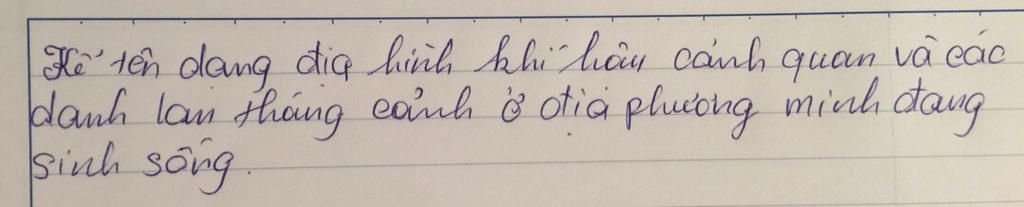 Kể tên dạng địa hình khí hậu cảnh quan và các
danh lam thắng cảnh ở địa phương mình đang
sinh sống.